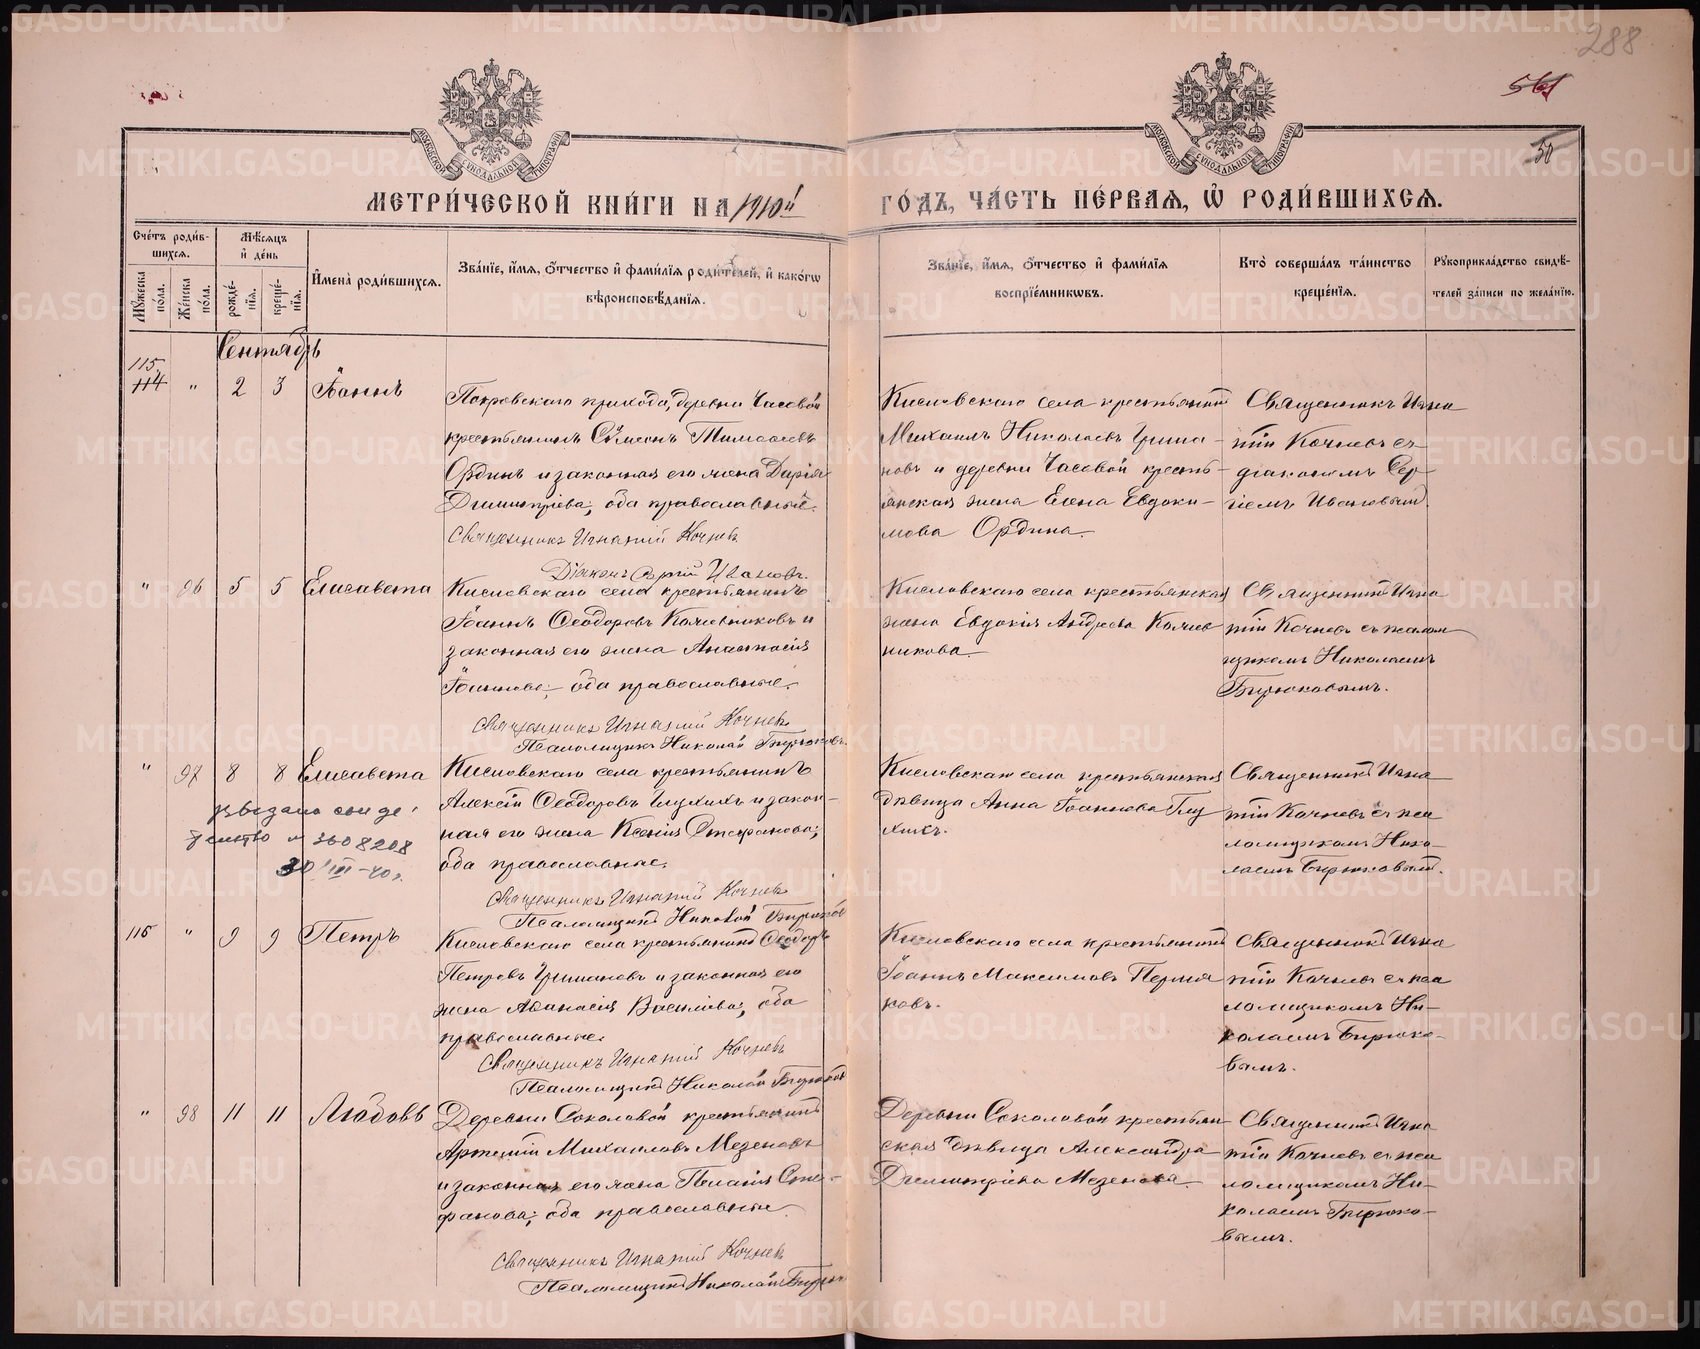 288
561
50
МЕТРИ́ЧЕСКОЙ КНИ́ГИ НА 1910й ГО́ДЪ, ЧА́СТЬ ПЕ́РВАѦ, Ѡ҆ РОДИ́ВШИХСѦ.
Сче́тъ роди́в-
шихсѧ.
Мѣ́сѧцъ
и҆ де́нь
Мꙋ́жеска по́ла.
Же́нска по́ла.
рожде́-
нїѧ.
креще́-
нїѧ.
И҆мена̀ роди́вшихсѧ.
Зва́нїе, и҆́мѧ, ѻ҆́тчество и҆ фами́лїѧ роди́телей, и҆ како́гѡ
вѣроисповѣ́данїѧ.
Зва́нїе, и҆́мѧ, ѻ҆́тчество и҆ фами́лїѧ
воспрїе́мникѡвъ.
Кто̀ соверша́лъ та́инство
креще́нїѧ.
Рꙋкоприкла́дство свидѣ́-
телей за́писи по жела́нїю.
Сентябрь
115
114 " 2 3 Іоаннъ
Покровскаго прихода, деревни Часовой
крестьянинъ Сѵмеонъ Тимофеевъ
Ординъ и законная его жена Дарія
Димитріева; оба православные.
Священникъ Игнатій Кочневъ
Діаконъ Сергій Ивановъ.
Кисловскаго села крестьянинъ
Михаилъ Николаевъ Грима-
новъ и деревни Часовой кресть-
янская жена Елена Евдоки-
мова Ордина.
Священникъ Игна
тій Кочневъ съ
діакономъ Сер-
гіемъ Ивановымъ.
" 96 5 5 Елисавета
Кисловскаго села крестьянинъ
Іоаннъ Ѳеодоровъ Колчевниковъ и
законная его жена Анастасія
Іоаннова; оба православные.
Священникъ Игнатій Кочневъ
Псаломщикъ Николай Бирюковъ.
Кисловскаго села крестьянская
жена Евдокія Андреева Колчев
никова.
Священникъ Игна
тій Кочневъ съ псалом
щикомъ Николаемъ
Бирюковымъ.
" 97 8 8 Елисавета
Кисловскаго села крестьянинъ
Алексій Ѳеодоровъ Глухихъ и закон-
ная его жена Ксенія Стефанова;
оба православные.
Священникъ Игнатій Кочневъ
Псаломщикъ Николай Бирюковъ
свиде
тельство № 3608208
30/III-40г.
Кисловскаго села крестьянская
дѣвица Анна Іоаннова Глу
хихъ.
Священникъ Игна
тій Кочневъ съ пса
ломщикомъ Нико-
лаемъ Бирюковымъ.
116 " 9 9 Петръ
Кисловскаго села крестьянинъ Ѳеодоръ
Петровъ Гримановъ и законная его
жена Аѳанасія Васильева; оба
православные.
Священникъ Игнатій Кочневъ
Псаломщикъ Николай Бирюковъ
Кисловскаго села крестьянинъ
Іоаннъ Максимовъ Пермя
ковъ.
Священникъ Игна
тій Кочневъ съ пса
ломщикомъ Ни-
колаемъ Бирюко-
вымъ.
" 98 11 11 Любовь
Деревни Соколовой крестьянинъ
Артемій Михаиловъ Мезеновъ
и законная его жена Пелагія Сте-
фанова; оба православные.
Священникъ Игнатій Кочневъ
Псаломщикъ Николай Бирюк
Деревни Соколовой крестьян
ская дѣвица Александра
Димитріева Мезенова.
Священникъ Игна
тій Кочневъ съ пса
ломщикомъ Ни-
колаемъ Бирюко-
вымъ.
METRIKI.GASO-URAL.RU